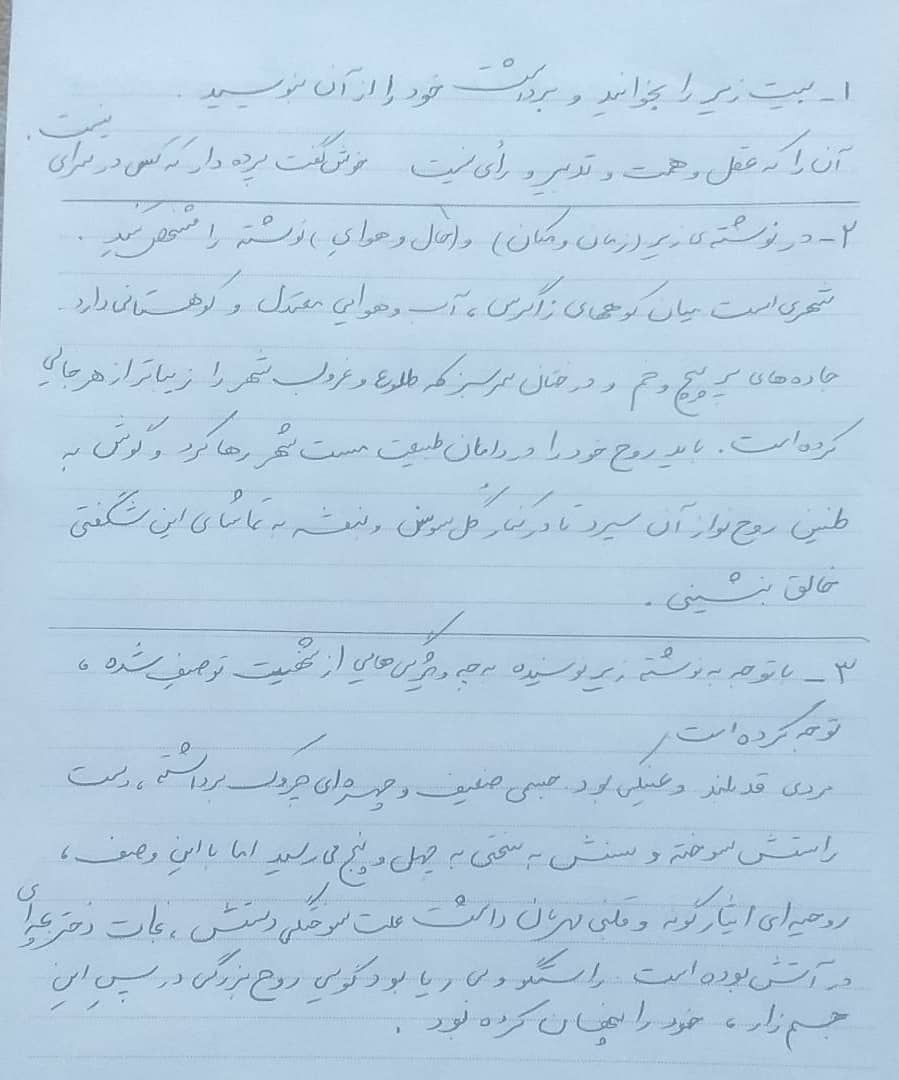 ۱- بیت زیر را بخوانید و برداشت خود را از آن بنویسید .
آن را که عقل و همت و تدبیر و رأی نیست خوش گفت پرده دار که کس در سرای نیست .
۲- در نوشته‌ی زیر (زمان و مکان) و (حال و هوای) نوشته را مشخص کنید .
شهری است میان کوههای زاگرس ، آب و هوایی معتدل و کوهستانی دارد.
جاده های پر پیچ و خم و درختان سرسبز که طلوع و غروب شهر را زیباتر از هر جایی
کرده است . باید روح خود را در دامان طبیعت مست شهر رها کرد و گوش به
طنین روح نواز آن سپرد تا در کنار گل سوسن و بنفشه به تماشای این شگفتی
خالق بنشینی .
۳- با توجه به نوشته زیر نویسنده به چه ویژگی هایی از شخصیت توصیف شده ،
توجه کرده است
مردی قد بلند و عینکی بود. جسمی ضعیف و چهره ای چروک برداشته ، دست
راستش سوخته و سنش به سختی به چهل و پنج می رسید اما با این وصف ،
روحیه ای ایثارگونه و قلبی مهربان داشت علت سوختگی دستش ، نجات دختر بچه ای
در آتش بوده است راستگو و بی ریا بود گویی روح بزرگی در پس این
جسم زار ، خود را پنهان کرده بود .